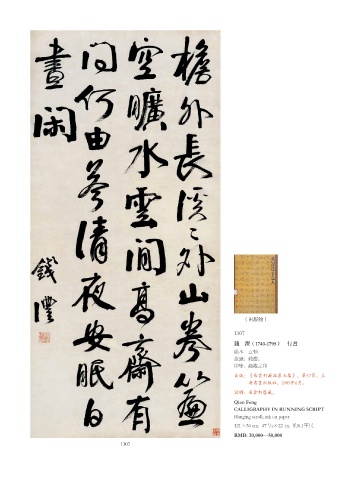 檐外長溪〻外山卷簾
空曠水雲間高齋有
問何由答清夜安眠白
晝閑
錢灃
1307
(出版物)
1307
錢 灃(1740-1795) 行書
紙本 立軸
Qian Feng
CALLIGRAPHY IN RUNNING SCRIPT
Hanging scroll; ink on paper
RMB: 30,000—50,000